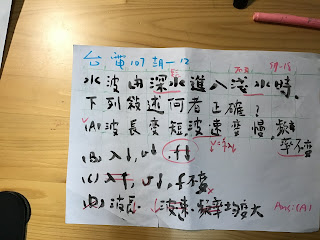 台電107 胡-12
水波由深水進入淺水時,
下列敘述何者正確?
(A) 波長變短,波速變慢,頻
率不變
v=fλ
(B) λ↑, v↓, f↓
(C) λ↑, v↓, f不變
(D) 波長、波速、頻率均變大
Ans:(A)